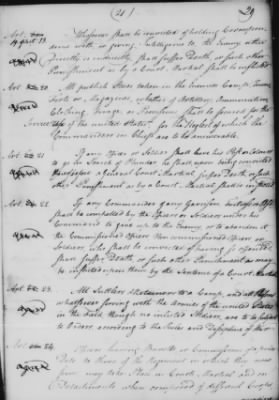 (21)
29
Whosoever shall be convicted of holding Correspon-
dence with or giving Intelligence to the Enemy either
directly or indirectly, shall suffer Death, or such other
Punishment as by a Court Martial shall be inflicted
Art. 20
All publick Stores taken in the Enemies Camp, Towns,
Forts or Magazines, whether of Artillery, Ammunition
Clothing, Forage, or Provisions, shall be secured for the
Service of the united States; for the Neglect of which the
Commanders in Chief are to be answerable.
Art. 21
If any Officer or Soldier shall leave his Post or Colours
to go in Search of Plunder he shall upon being convicted
a General Court Martial suffer Death or such
other Punishment as by a Court Martial shall be inflicted
Art. 22
If any Commander of any Garrison
shall be compelled by the Officers or Soldiers under his
Command to give up to the Enemy, or to abandon it
the Commissioned Officers non commissioned Officers or
Soldiers who shall be convicted of having so offended
shall suffer Death, or such other Punishment as may
be inflicted upon them by the Sentence of a Court Martial
Art. 23
All Suttlers Retainers to a Camp, and all Persons
whatsoever serving with the Armies of the united States
in the Field though no inlisted Soldier, are to be Subject
to Orders according to the Rules and Discipline of War
Art. 24
Officers having Brevets or Commissions of a prior
Date to those of the Regiment in which they now
serve may take Place in Courts Martial and on
Detachments when composed of different Corps